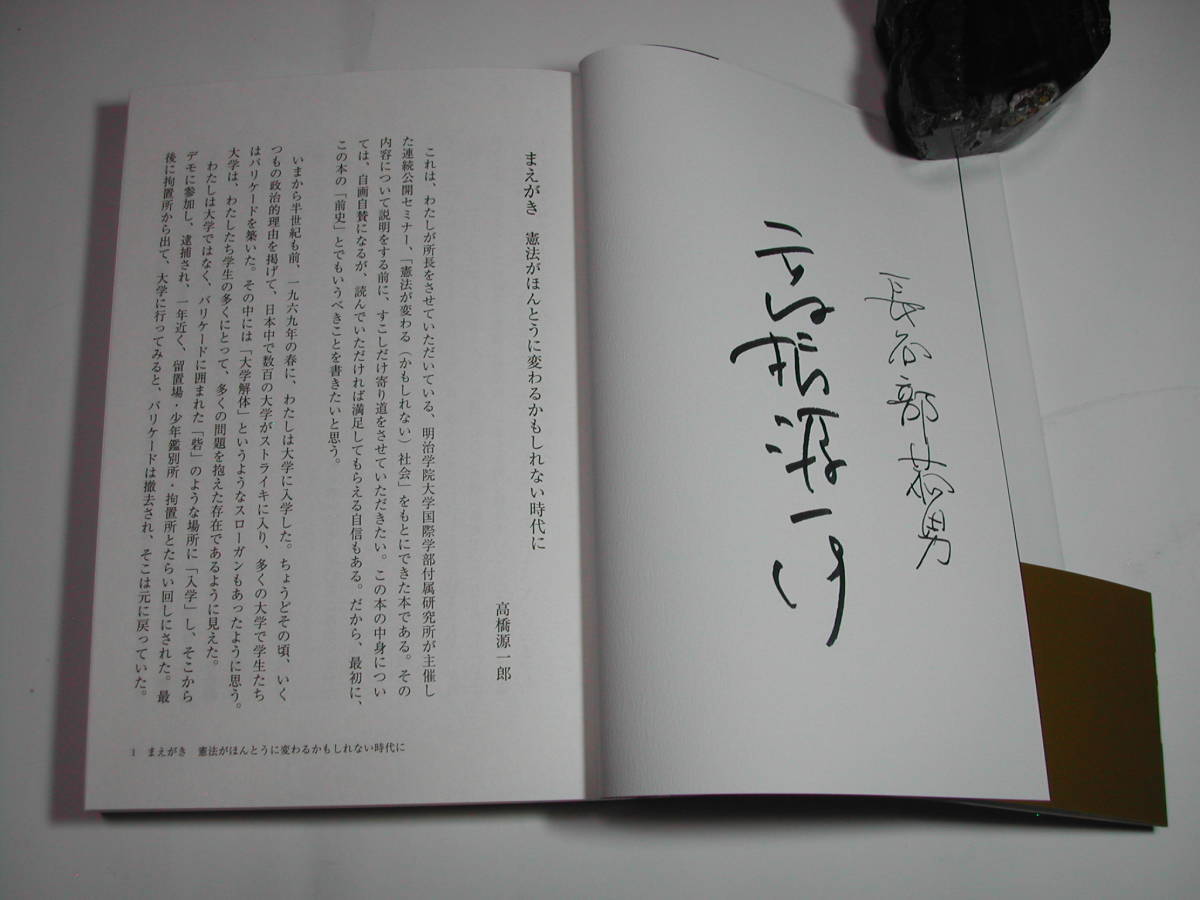 長谷部恭男
高橋源一郎
まえがき　憲法がほんとうに変わるかもしれない時代に
高橋源一郎
これは、わたしが所長をさせていただいている、明治学院大学国際学部付属研究所が主催し
た連続公開セミナー、「憲法が変わる（かもしれない）社会」をもとにできた本である。その
内容について説明をする前に、すこしだけ寄り道をさせていただきたい。この本の中身につい
ては、自画自賛になるが、読んでいただければ満足してもらえる自信もある。だから、最初に、
この本の「前史」とでもいうべきことを書きたいと思う。
いまから半世紀も前、一九六九年の春に、わたしは大学に入学した。ちょうどその頃、いく
つもの政治的理由を掲げて、日本中で数百の大学がストライキに入り、多くの大学で学生たち
はバリケードを築いた。その中には「大学解体」というようなスローガンもあったように思う。
大学は、わたしたち学生の多くにとって、多くの問題を抱えた存在であるように見えた。
わたしは大学ではなく、バリケードに囲まれた「砦」のような場所に「入学」し、そこから
デモに参加し、逮捕され、一年近く、留置場・少年鑑別所・拘置所とたらい回しにされた。最
後に拘置所から出て、大学に行ってみると、バリケードは撤去され、そこは元に戻っていた。
1　まえがき　憲法がほんとうに変わるかもしれない時代に